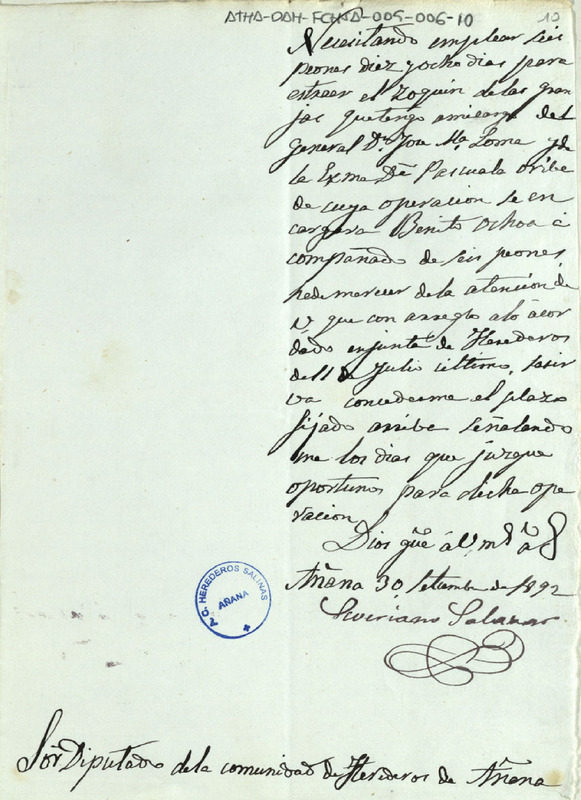 ATHA-DAH-FCHSA-005-006-10
10
Necesitando emplear seis
peones diez y ocho dias para
estraer el zoquin de las gran
jas que tengo amicargo del
General Dn. Jose Ma. Loma y de
la Exma Da Pascuala oribe
de cuya operacion se en
cargara Benito Ochoa á
compañado de seis peones,
hede merecer de la atencion de
V. que con arreglo a ló ácor
dado enjunta de Herederos
del 1 de Julio último, sesir
va concederme el plazo
fijado arriba señalando
me los dias que juzgue
oportunos para dicha ope
racion
Dios gue á V. ms as
Añana 30 Setiembre de 1892
Severiano Salazar
P. C. HEREDEROS SALINAS
AÑANA
Sor Diputado de la comunidad de Herederos de Añana